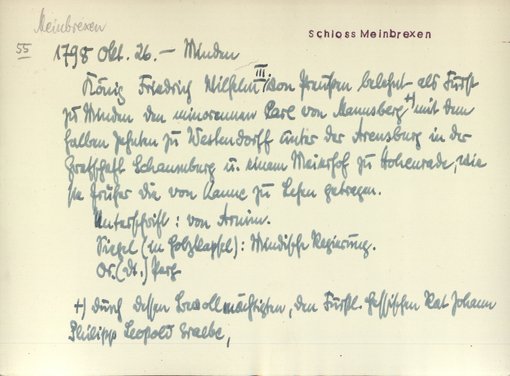 Meinbrexen
Schloss Meinbrexen
55 1798 Okt. 26. – Minden
König Friedrich Wilhelm III von Preußen belehnt als Fürst
zu Minden den minorennen Carl von Mannsberg +) mit dem
halben Zehnten zu Westendorff unter der Arensburg in der
Grafschaft Schaumburg u. einem Meierhof zu Hohenrade, wie
sie früher die von Kanne zu Lehen getragen.
Unterschrift: von Arnim.
Siegel (in Holzkapsel): Mindische Regierung.
Or. (dt.) Perg.
+) durch dessen Bevollmächtigten, den Fürstl. Hessischen Rat Johann
Philipp Leopold Graebe,